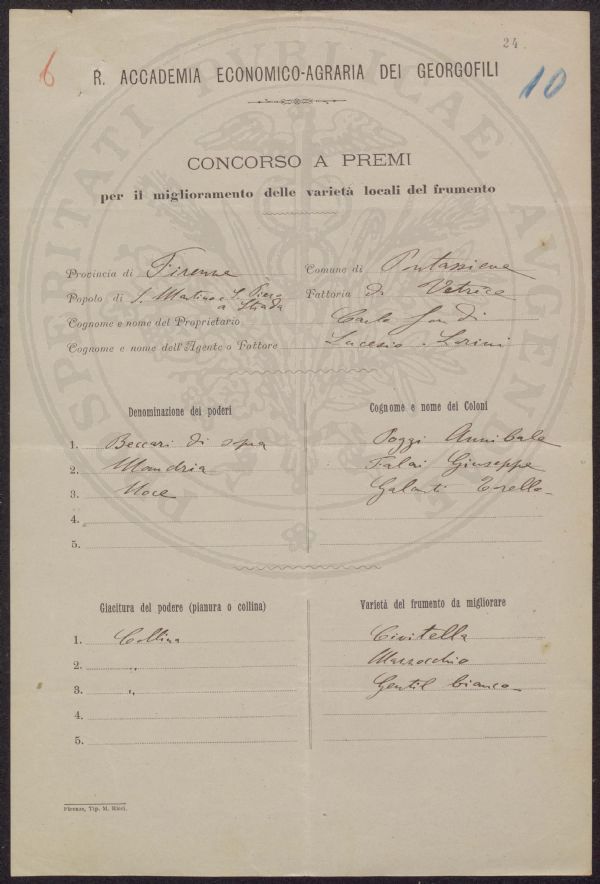 24
6
10
R. ACCADEMIA ECONOMICO-AGRARIA DEI GEORGOFILI
CONCORSO A PREMI
per il miglioramento delle varietà locali del frumento
Provincia di Firenze
Comune di Pontassieve
Popolo di S. Martino e S. Piero a Strada
Fattoria di Vetrice
Cognome e nome del Proprietario Carlo
Cognome e nome dell'Agente o Fattore
Denominazione dei poderi
Cognome e nome dei Coloni
1. Beccari di sopra
Poggi Annibale
2. Mandria
Falai Giuseppe
3. Noce
Galanti Torello
4.
5.
Giacitura del podere (pianura o collina)
Varietà del frumento da migliorare
1. Collina
Civitella
2. "
Mazzocchio
3. "
Gentil bianco
4.
5.
Firenze, Tip. M. Ricci.